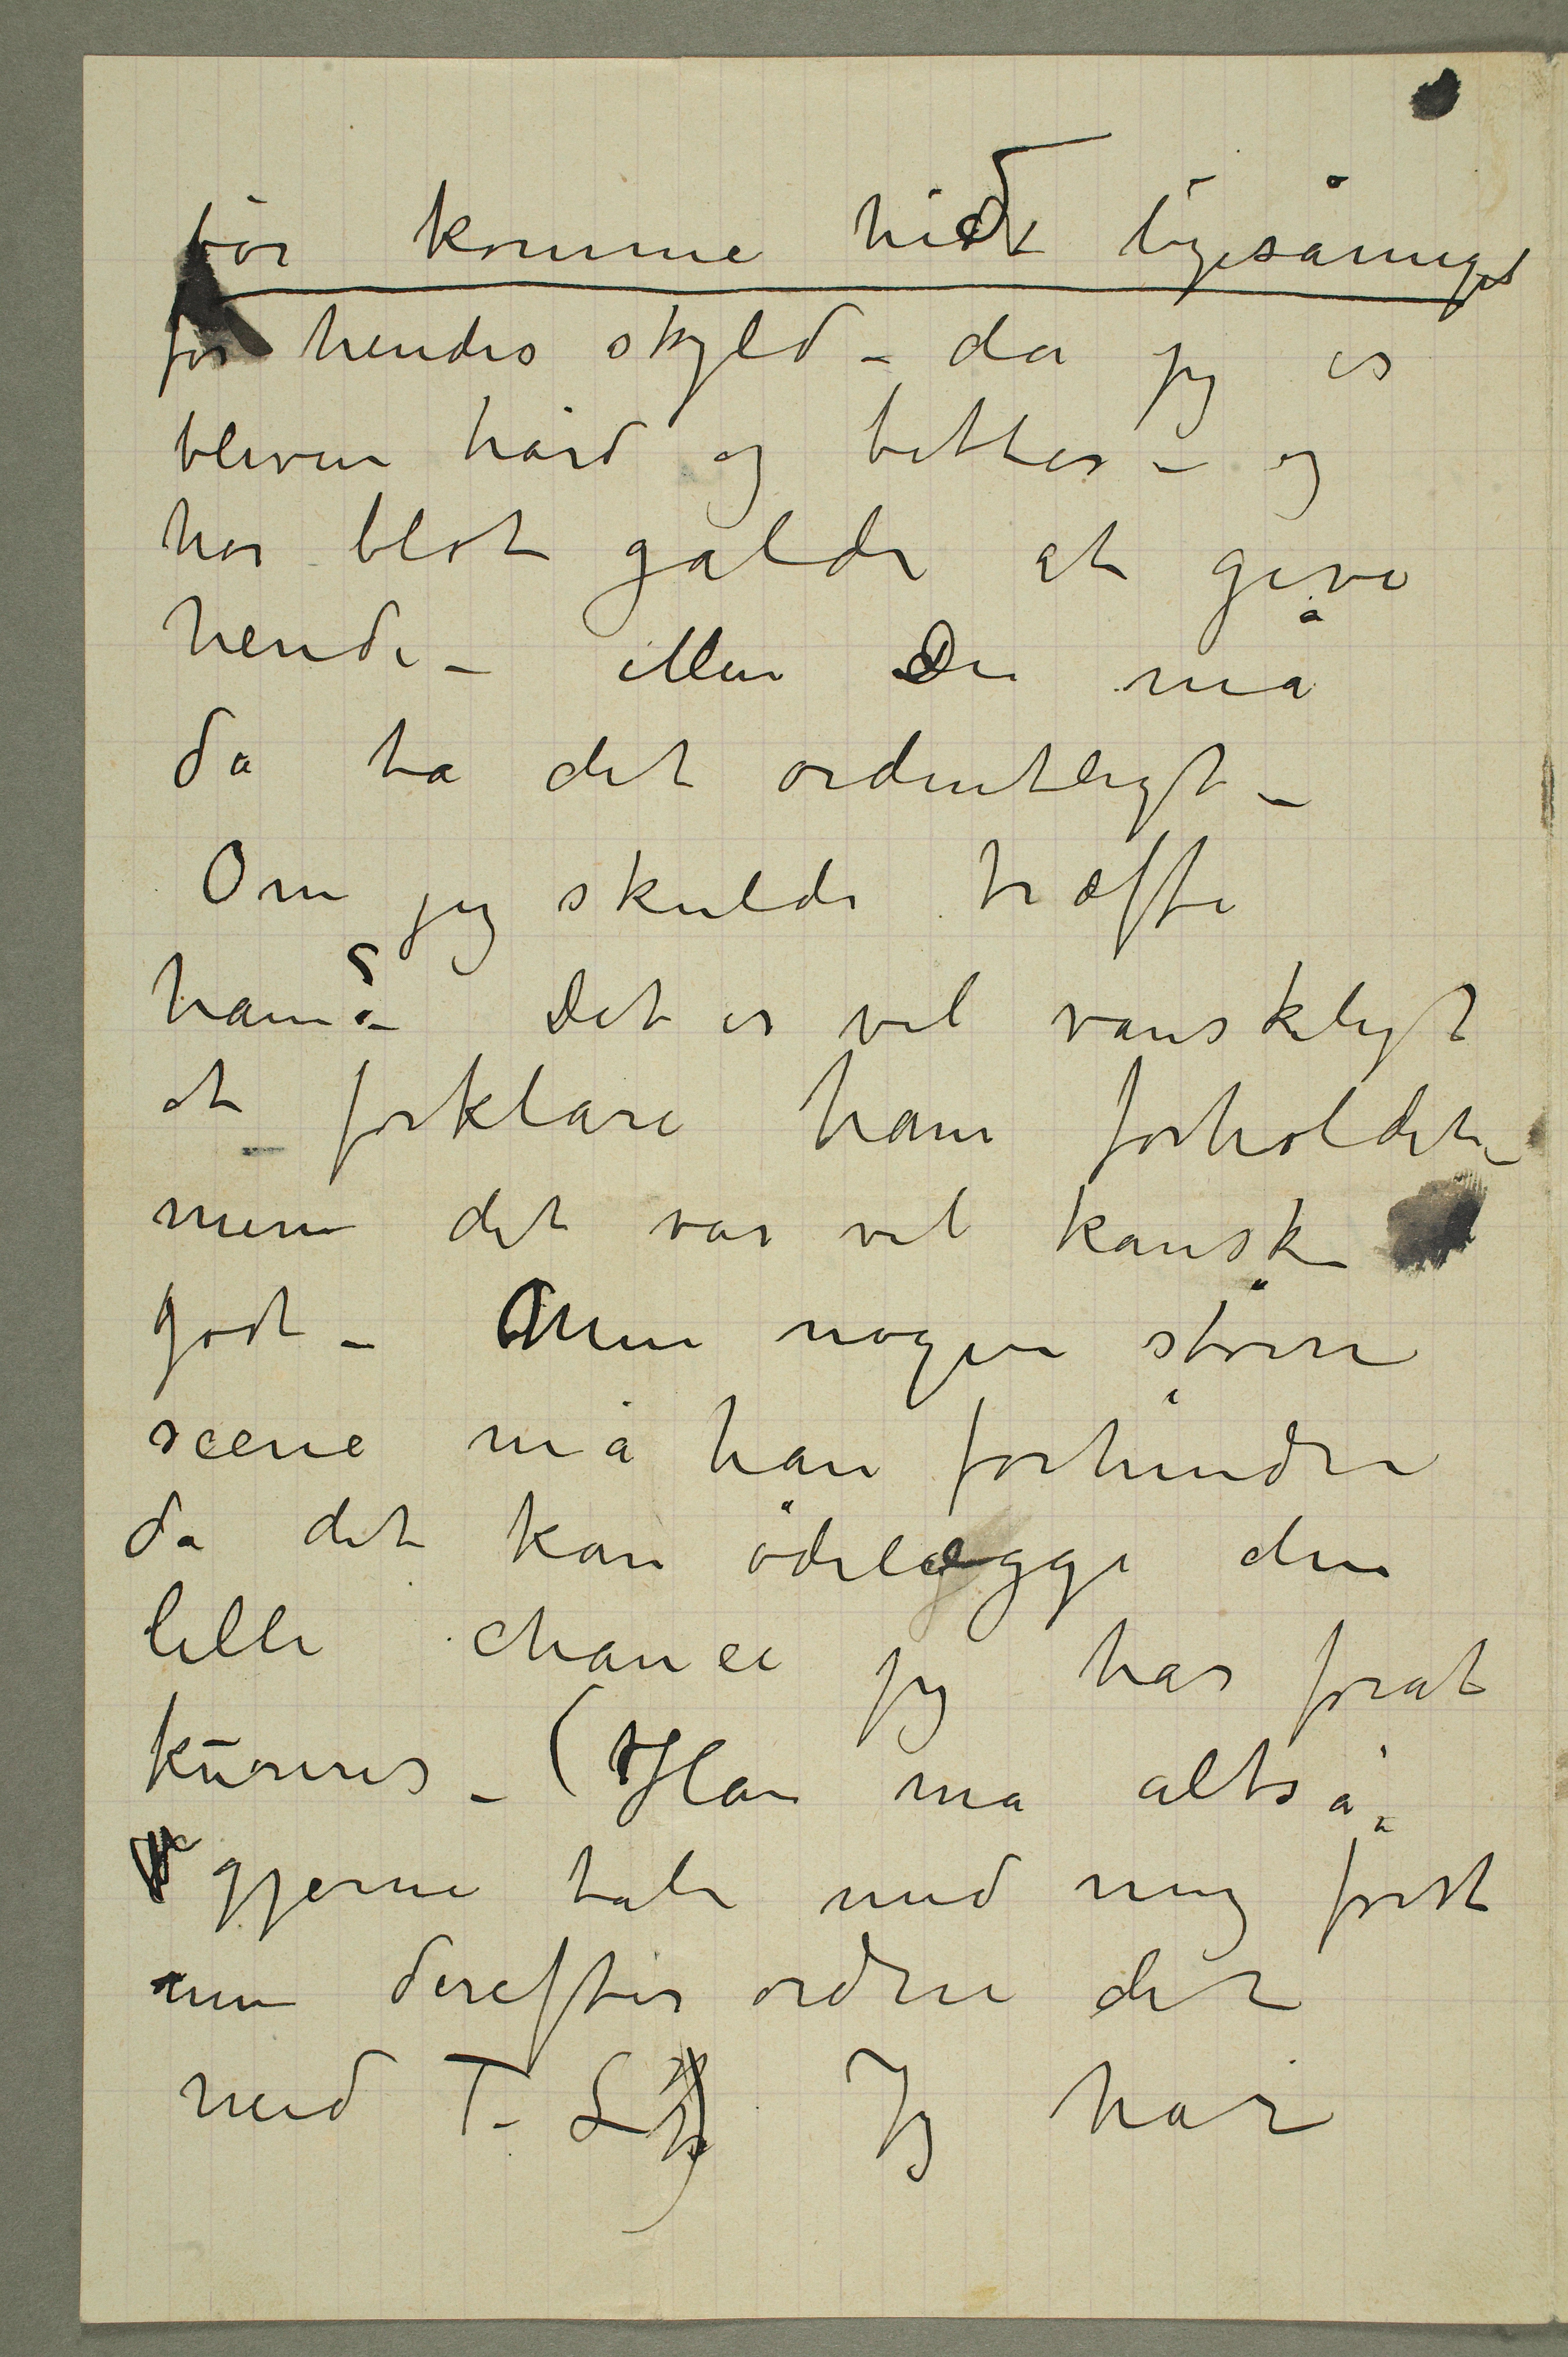 bör komme hidt ligesåmeget
for hendes skyld – da jeg er
bleven hård og bitter – og
har blot galde at give
hende – Men De må
da ta det ordentligt –
Om jeg skulde træffe
ham? – Det er vel vanskeligt
at forklare ham forholdet –
men det var vel kanske
godt – Men nogen större
scene må han forhindre
da det kan ödelægge den
lille chance jeg har forat
kureres – (Han må altså
gjerne tale med mig först
men derefter ordne det
med T. L) Jeg har